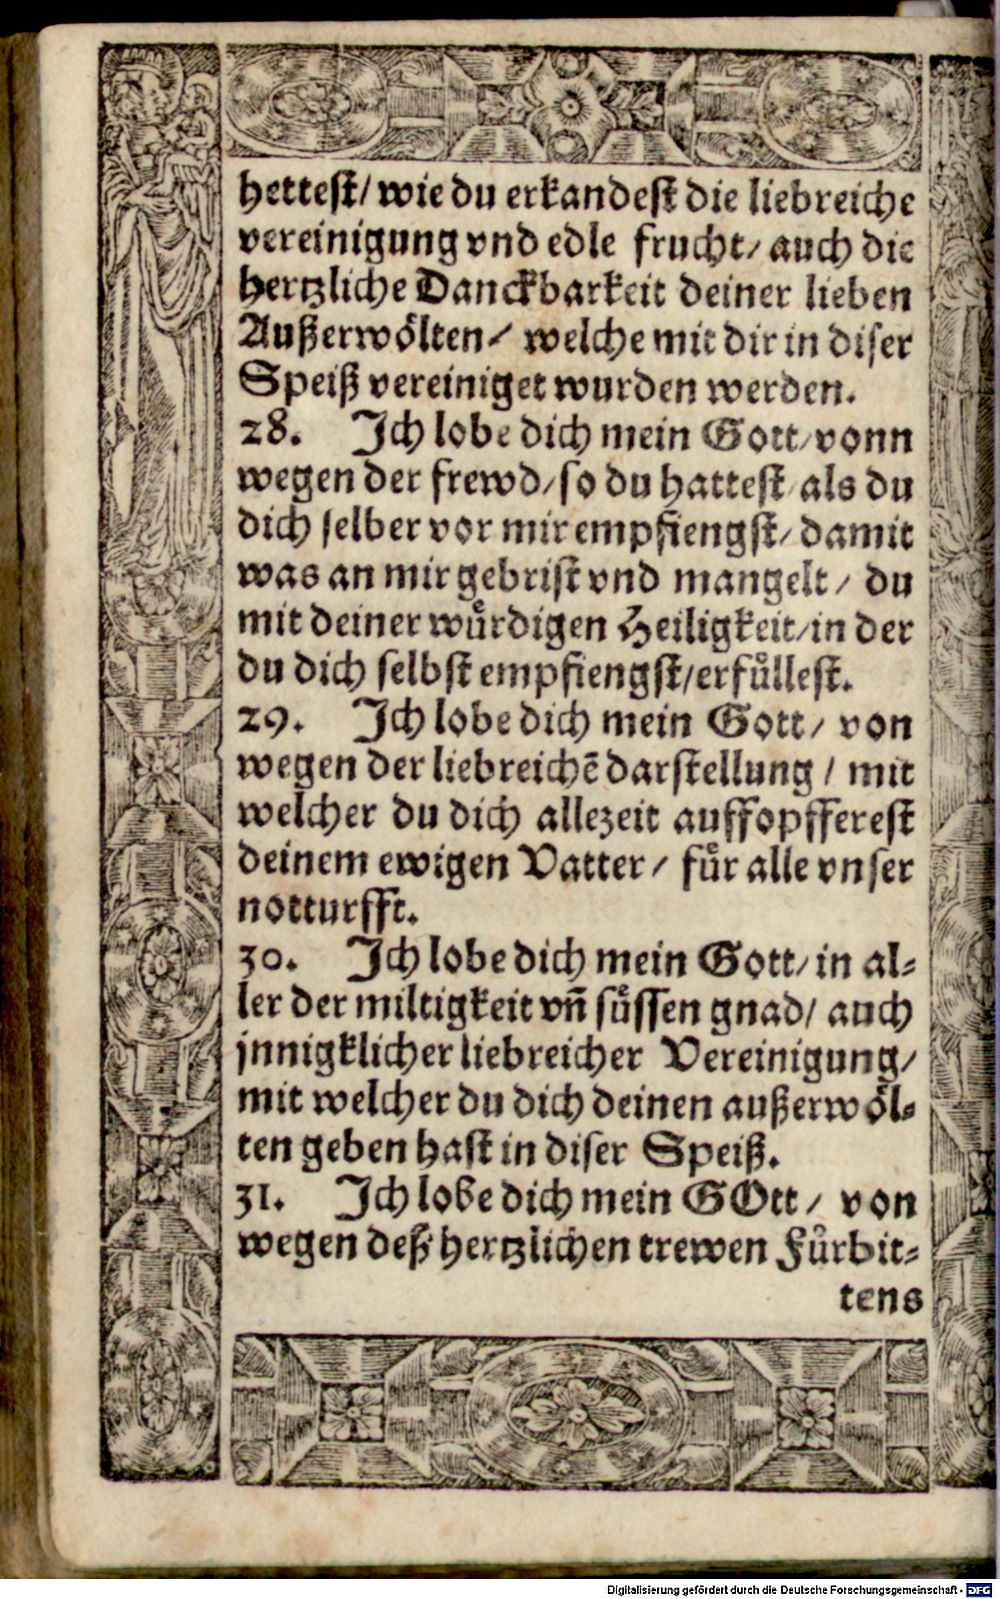 hettest/ wie du erkandest die liebreiche
vereinigung vnd edle frucht/ auch die
hertzliche Danckbarkeit deiner lieben
Außerwoͤlten/ welche mit dir in diser
Speiß vereiniget wurden werden.
28. Ich lobe dich mein Gott/ vonn
wegen der frewd/ so du hattest/ als du
dich selber vor mir empfiengst/ damit
was an mir gebrist vnd mangelt/ du
mit deiner wuͤrdigen Heiligkeit/ in der
du dich selbst empfiengst/ erfuͤllest.
29. Ich lobe dich mein Gott/ von
wegen der liebreichẽ darstellung/ mit
welcher du dich allezeit auffopfferest
deinem ewigen Vatter/ fuͤr alle vnser
notturfft.
30. Ich lobe dich mein Gott/ in al-
ler der miltigkeit vñ suͤssen gnad/ auch
jnnigklicher liebreicher Vereinigung/
mit welcher du dich deinen außerwoͤl-
ten geben hast in diser Speiß.
31. Ich lobe dich mein GOtt/ von
wegen deß hertzlichen trewen Fuͤrbit-
tens
Digitalisierung gefördert durch die Deutsche Forschungsgemeinschaft - DFG